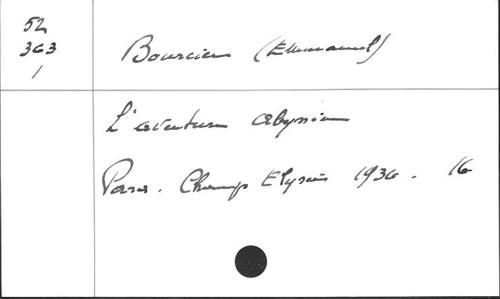 52
363
1
Bourcier (Emmanuel)
L'aventure abyssine
Paris. Champs Elysées 1936. 16